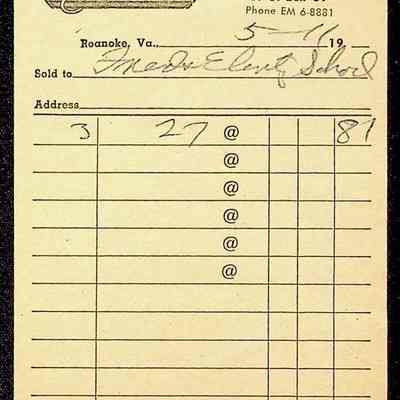 Phone EM 6-8881
Roanoke, Va. 5-11 19
Sold to Elenty School
Address
3 27 @ 81
@
@
@
@
@